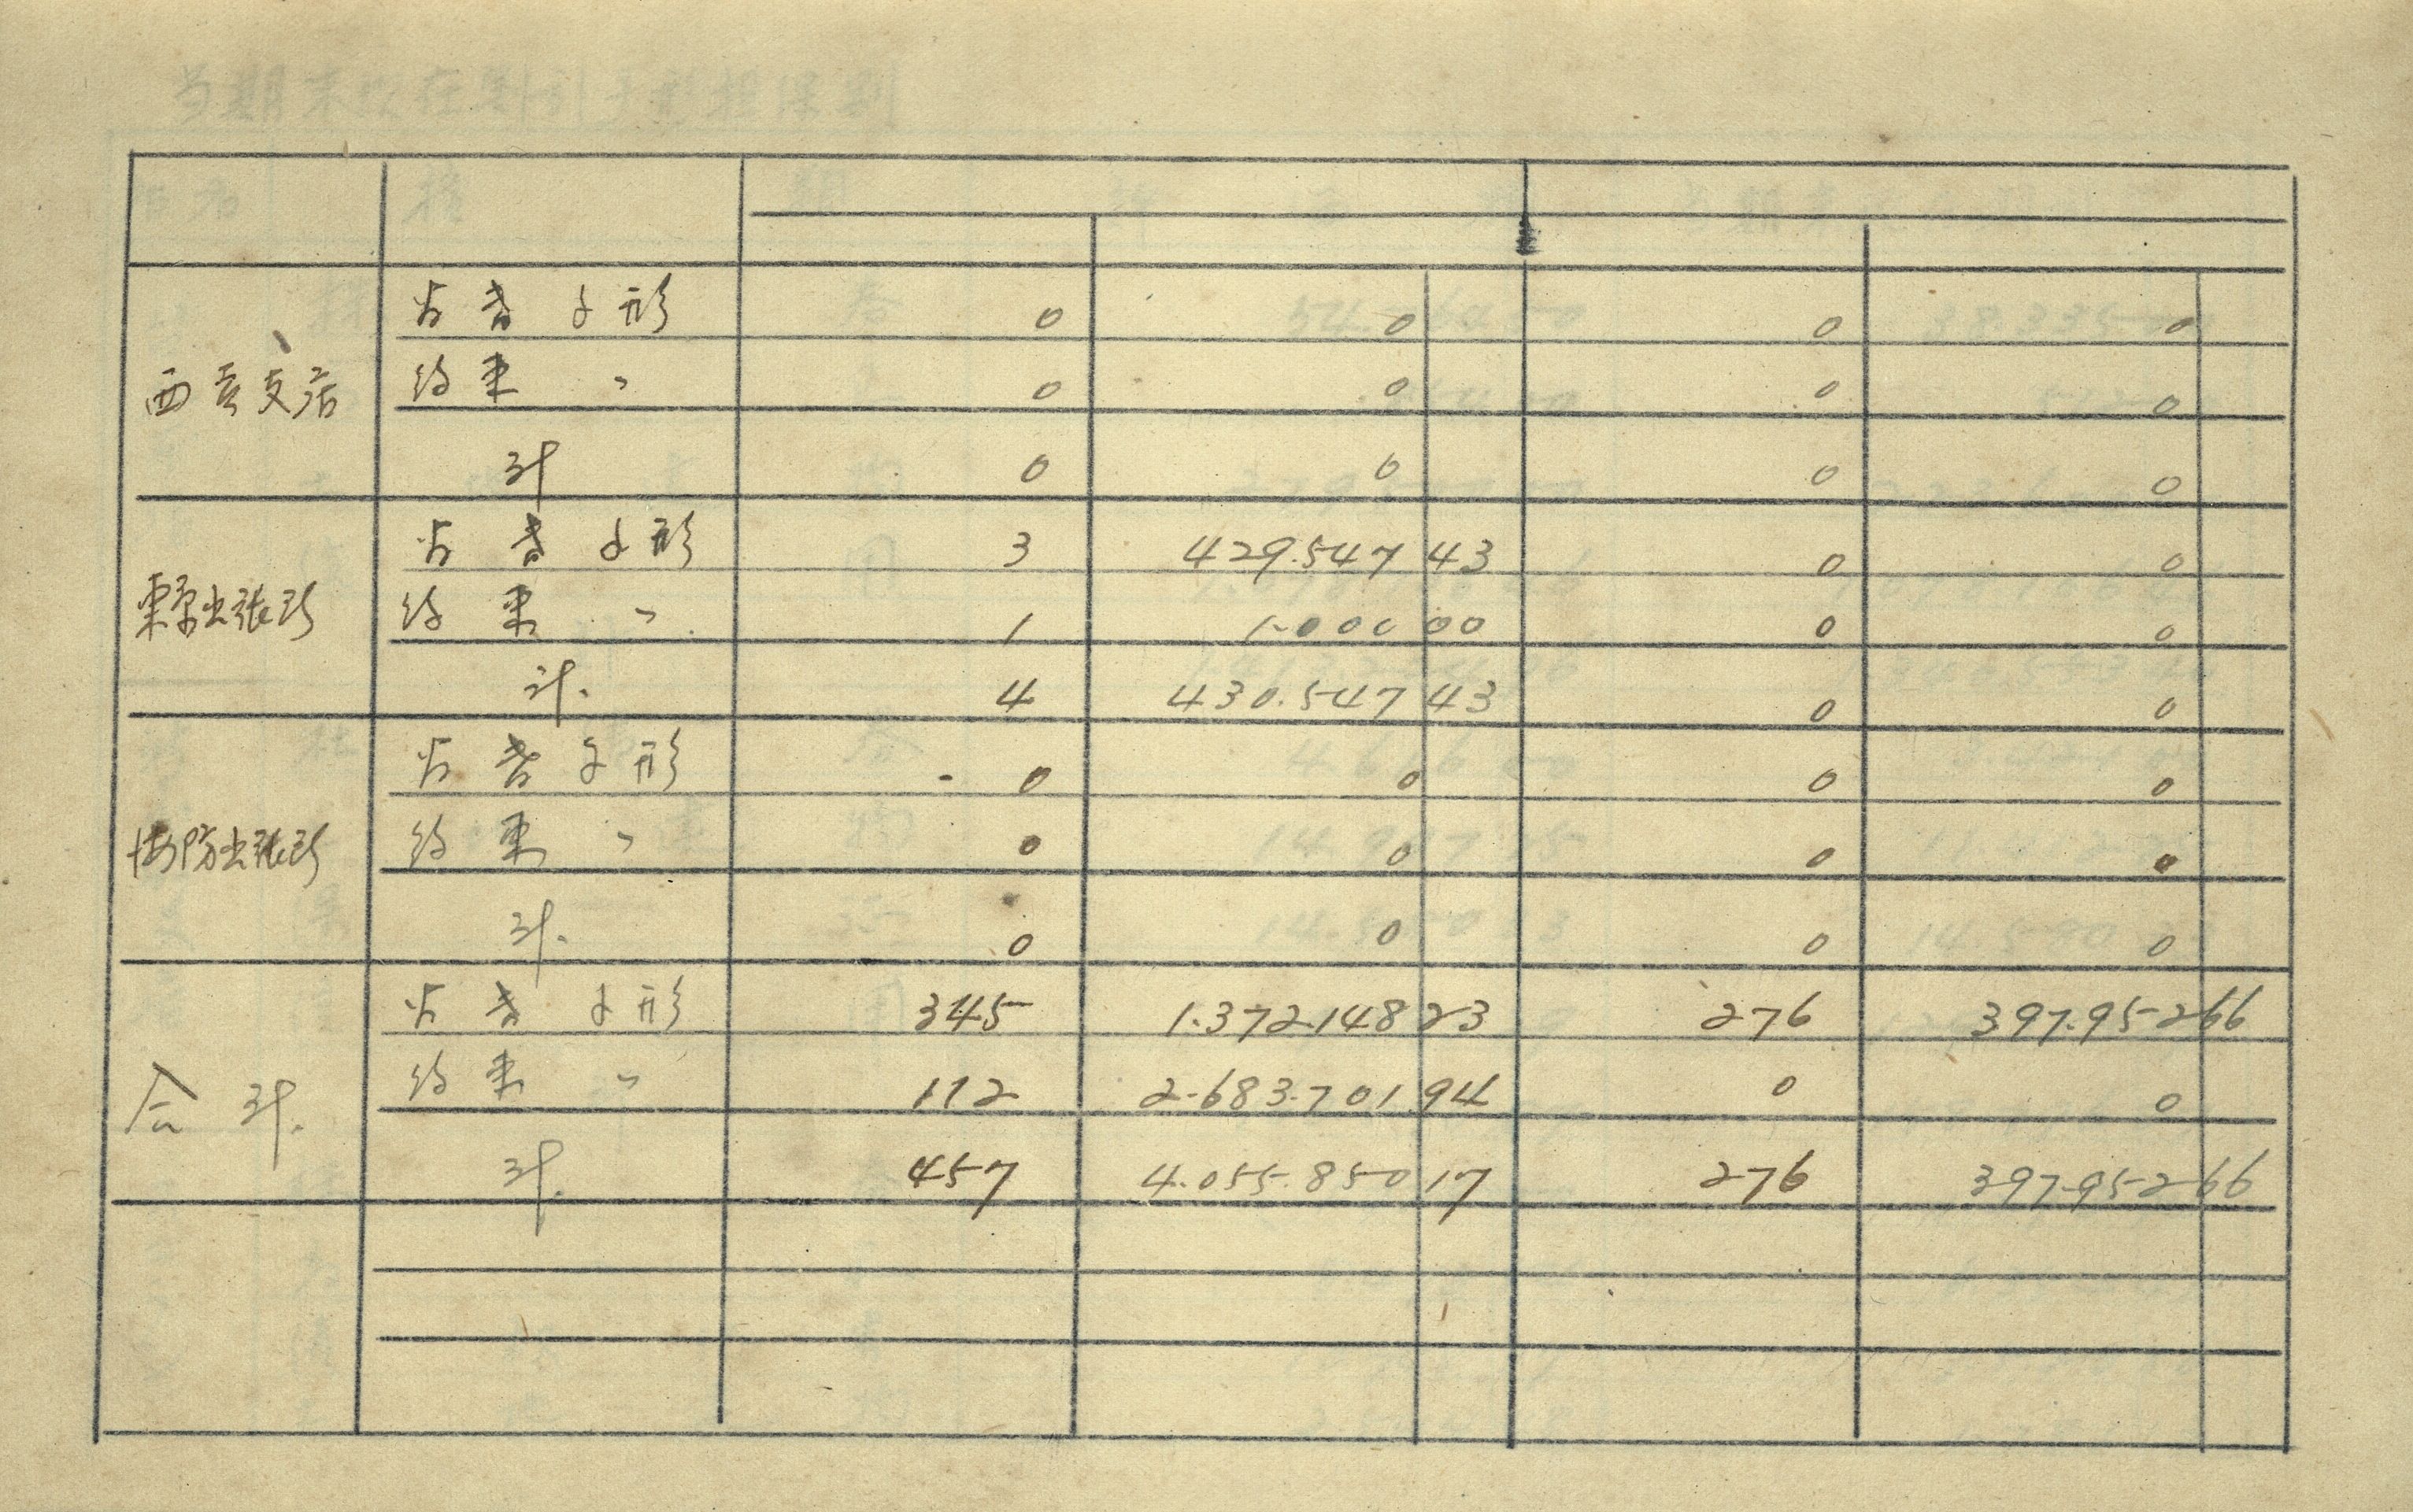 西貢支店 为替手形 0 0 0 0
約束 〃 0 0 0 0
計 0 0 0 0
東京出張所 为替手形 3 429.547 43 0 0
約束 〃 1 1.000 00 0 0
計. 4 430.547 43 0 0
海防出張所 为替手形 0 0 0 0
約束 〃 0 0 0 0
計. 0 0 0 0
合計. 为替手形 345 1.372.148 23 276 397.952 66
約束 〃 112 2.683.701 94 0 0
計. 457 4.055.850 17 276 397.952 66